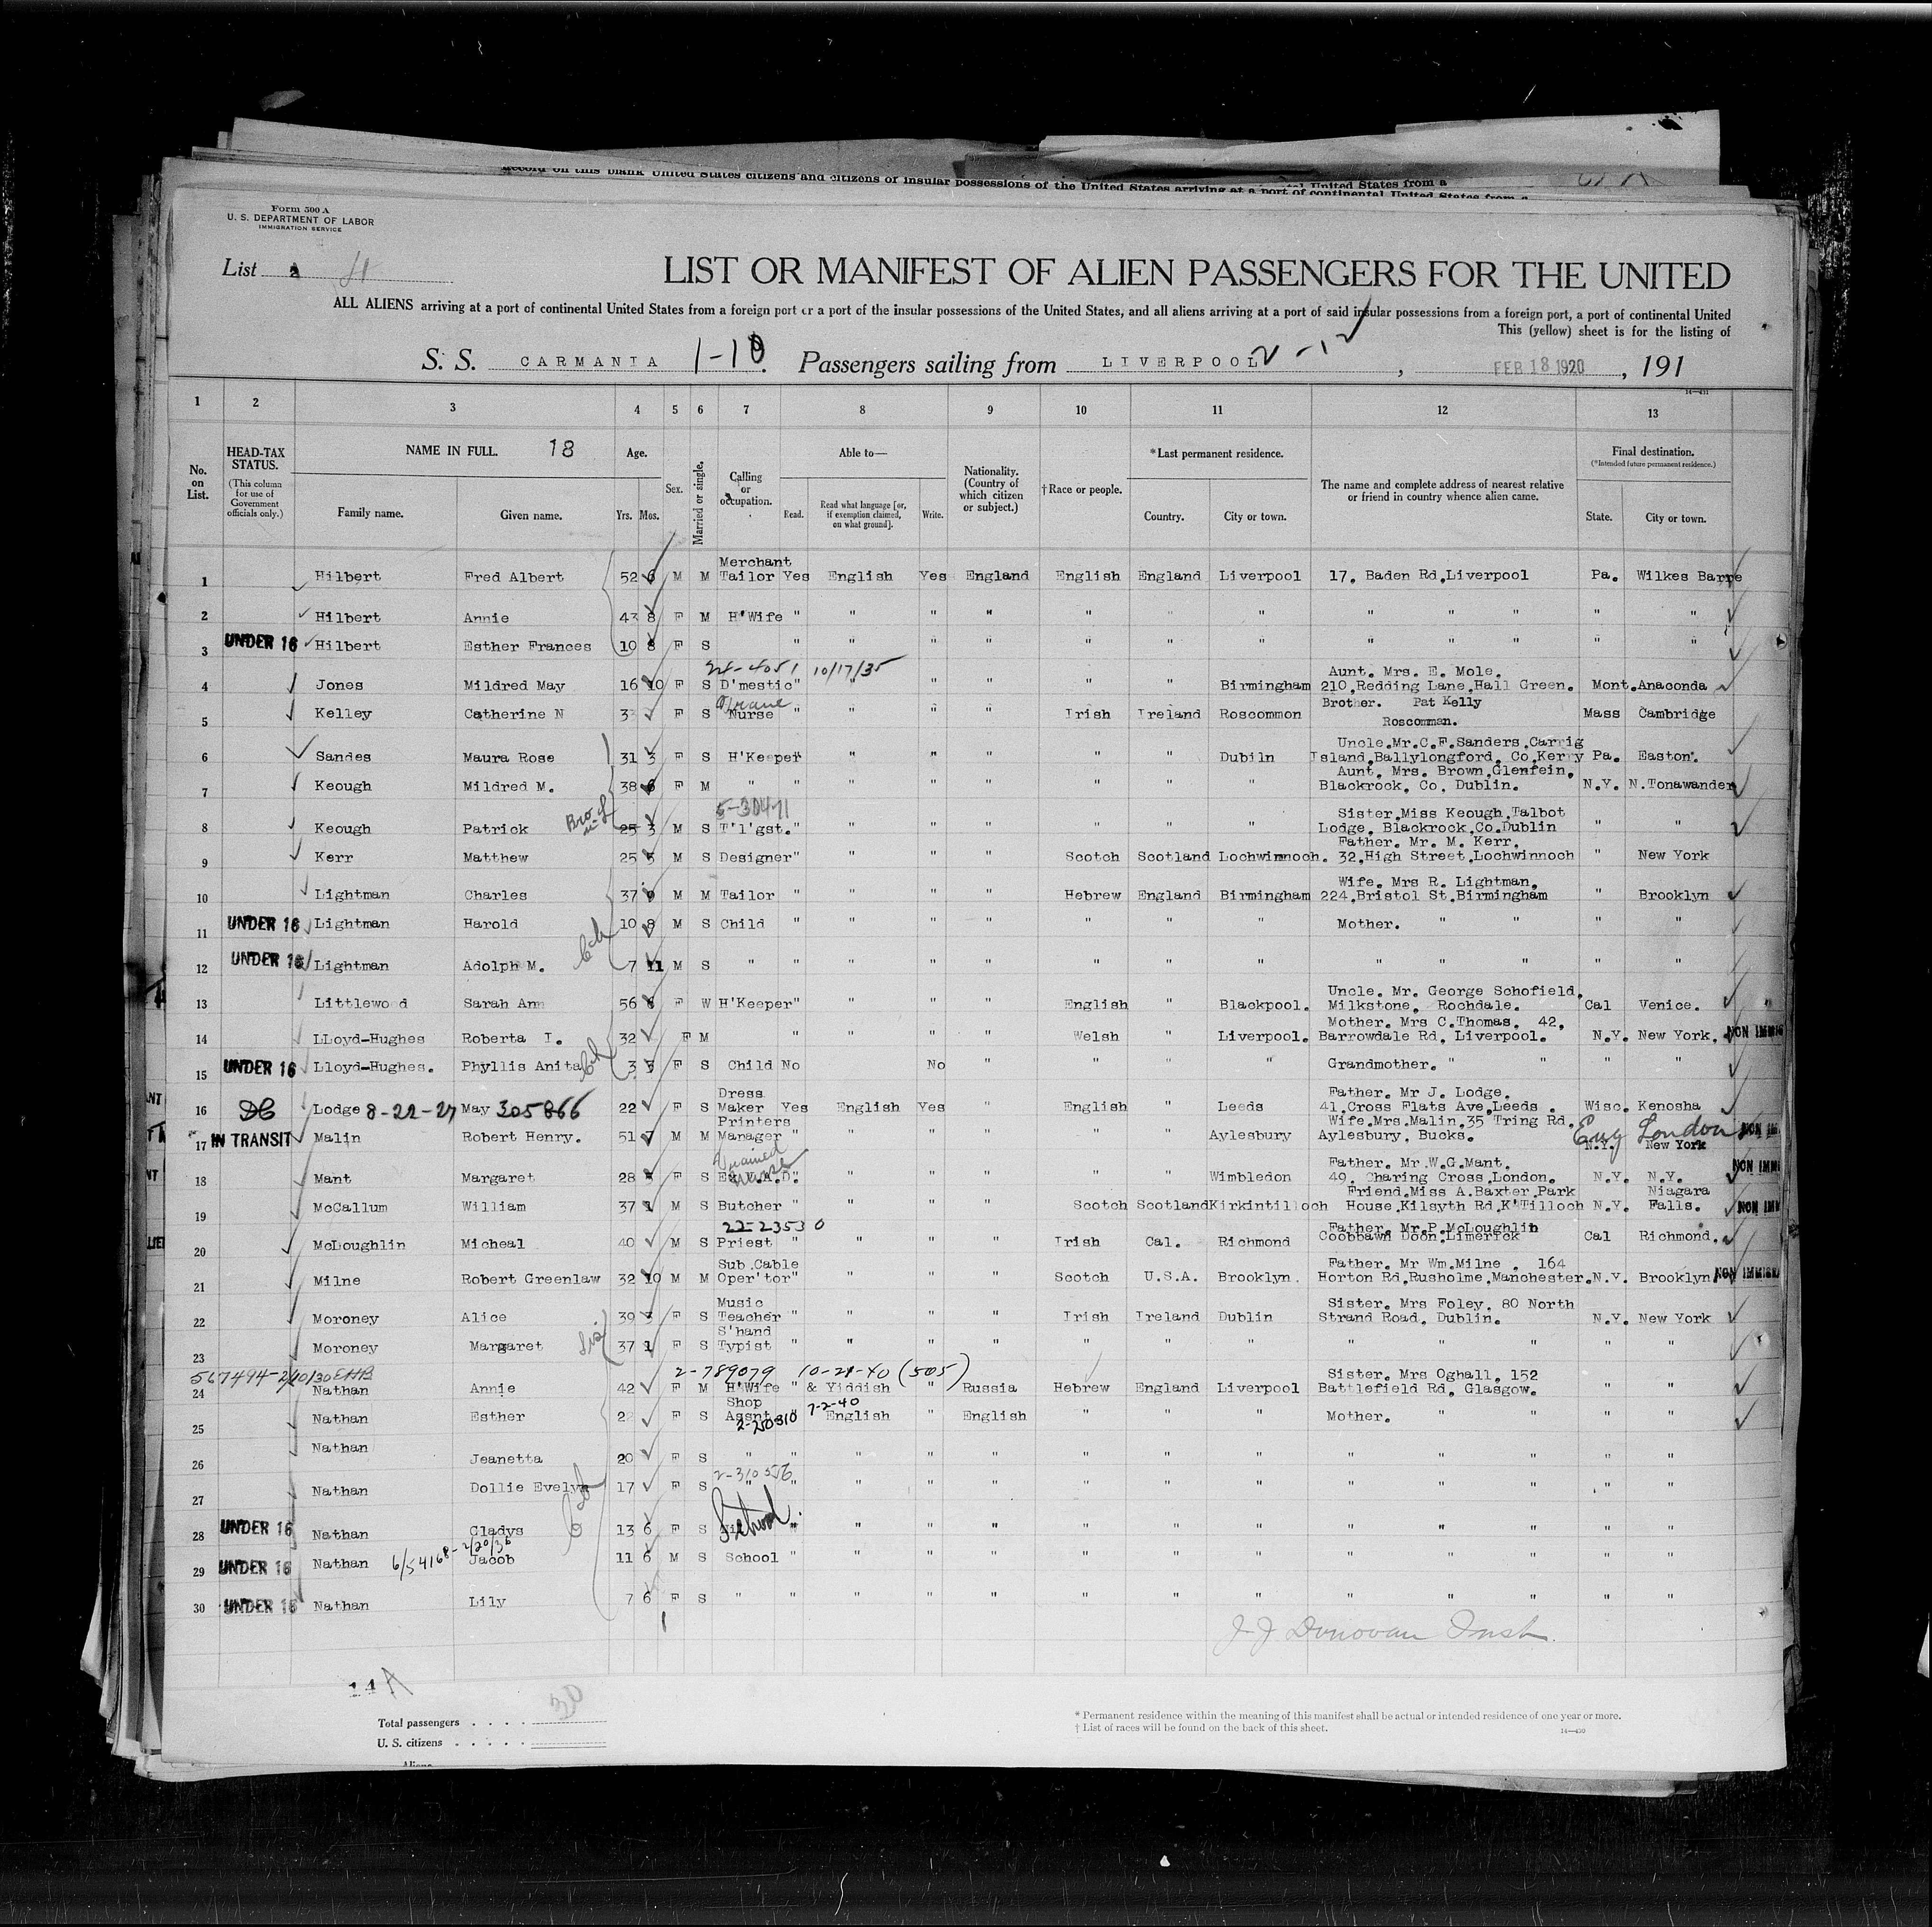 Record on this blank United States citizens and citizens of insular possessions of the United States arriving at a port of continental United States from a
Form 500 A
U. S. DEPARTMENT OF LABOR
IMMIGRATION SERVICE
List
LIST OR MANIFEST OF ALIEN PASSENGERS FOR THE UNITED
ALL ALIENS arriving at a port of continental United States from a foreign port or a port of the insular possessions of the United States, and all aliens arriving at a port of said insular possessions from a foreign port, a port of continental United
This (yellow) sheet is for the listing of
S. S. CARMANIA 1-10 Passengers sailing from LIVERPOOL 2-12, FEB 18 1920, 191
14—431
1 2 3 4 5 6 7 8 9 10 11 12 13
No. on List.
HEAD-TAX STATUS.
(This column for use of Government officials only.)
NAME IN FULL. 18
Family name. Given name.
Age.
Yrs. Mos.
Sex.
Married or single.
Calling or occupation.
Able to—
Read. Read what language [or, if exemption claimed, on what ground]. Write.
Nationality. (Country of which citizen or subject.)
†Race or people.
*Last permanent residence.
Country. City or town.
The name and complete address of nearest relative or friend in country whence alien came.
Final destination.
(*Intended future permanent residence.)
State. City or town.
Merchant
1 Hilbert Fred Albert 52 6 M M Tailor Yes English Yes England English England Liverpool 17, Baden Rd,Liverpool Pa. Wilkes Barre
2 Hilbert Annie 43 8 F M H'Wife " " " " " " " " " " " "
3 UNDER 16 Hilbert Esther Frances 10 8 F S " " " " " " " " " " " "
24-4051 10/17/35
Aunt. Mrs. E. Mole.
4 Jones Mildred May 16 10 F S D'mestic " " " " " " Birmingham 210,Redding Lane,Hall Green. Mont. Anaconda
Brother. Pat Kelly
5 Kelley Catherine N 33 F S Nurse " " " " Irish Ireland Roscommon Roscomman. Mass Cambridge
Uncle.Mr.C.F.Sanders,Carrig
6 Sandes Maura Rose 31 3 F S H'Keeper " " " " " " Dubiln Island,Ballylongford, Co.Kerry Pa. Easton.
Aunt. Mrs. Brown,Glenfein,
7 Keough Mildred M. 38 6 F M " " " " " " " " Blackrock, Co, Dublin. N.Y. N.Tonawanden
5-30471
Sister,Miss Keough,Talbot
8 Keough Patrick 25 3 M S T'l'gst. " " " " " " " Lodge, Blackrock,Co.Dublin " "
Father. Mr. M. Kerr,
9 Kerr Matthew 25 5 M S Designer " " " " Scotch Scotland Lochwinnoch. 32,High Street,Lochwinnoch " New York
Wife. Mrs R. Lightman,
10 Lightman Charles 37 9 M M Tailor " " " " Hebrew England Birmingham 224,Bristol St.Birmingham " Brooklyn
11 UNDER 16 Lightman Harold 10 8 M S Child " " " " " " " Mother. " " " "
12 UNDER 16 Lightman Adolph M. 7 11 M S " " " " " " " " " " " " "
Uncle. Mr. George Schofield,
13 Littlewood Sarah Ann 56 6 F W H'Keeper " " " " English " Blackpool. Milkstone, Rochdale. Cal Venice.
Mother. Mrs C.Thomas, 42,
14 LLoyd-Hughes Roberta I. 32 F M " " " " Welsh " Liverpool. Barrowdale Rd, Liverpool. N.Y. New York. NON IMMIG
15 UNDER 16 Lloyd-Hughes. Phyllis Anita 3 3 F S Child No No " " " " Grandmother. " " " "
Dress
Father. Mr J. Lodge,
16 Lodge 8-22-27 May 305866 22 F S Maker Yes English Yes " English " Leeds 41,Cross Flats Ave,Leeds . Wisc. Kenosha
Printers
Wife.Mrs.Malin,35 Tring Rd,
17 IN TRANSIT Malin Robert Henry. 51 7 M M Manager " " " " " " Aylesbury Aylesbury, Bucks. N.Y. New York Eng London NON IM
Trained Nurse
Father. Mr W.G.Mant,
18 Mant Margaret 28 3 F S V.A.D. " " " " " " Wimbledon 49, Charing Cross,London. N.Y. N.Y. NON IMMI
Friend,Miss A.Baxter,Park Niagara
19 McCallum William 37 1 M S Butcher " " " " Scotch Scotland Kirkintilloch House,Kilsyth Rd,K'Tilloch N.Y. Falls. NON IMM
22-23530
Father, Mr.P.McLoughlin
20 McLoughlin Micheal 40 M S Priest " " " " Irish Cal. Richmond Coobbawn Doon,Limerick Cal Richmond.
Sub.Cable
Father. Mr Wm.Milne , 164
21 Milne Robert Greenlaw 32 10 M M Oper'tor " " " " Scotch U.S.A. Brooklyn. Horton Rd,Rusholme,Manchester. N.Y. Brooklyn NON IMMIGRA
Music
Sister. Mrs Foley, 80 North
22 Moroney Alice 39 3 F S Teacher " " " " Irish Ireland Dublin Strand Road, Dublin. N.Y. New York
S'hand
23 Moroney Margaret 37 1 F S Typist " " " " " " " " " " " "
567494-2/10/30 EHB 2-789079 10-21-40 (505)
Sister. Mrs Oghall, 152
24 Nathan Annie 42 F M H'Wife " & Yiddish " Russia Hebrew England Liverpool Battlefield Rd, Glasgow. " "
Shop 7-2-40
25 Nathan Esther 22 F S Assnt. " English " English " " " Mother. " " " "
2-20810
26 Nathan Jeanetta 20 F S " " " " " " " " " " " " "
2-310556
27 Nathan Dollie Evelyn 17 F S " " " " " " " " " " " " "
28 UNDER 16 Nathan Gladys 13 6 F S School " " " " " " " " " " " "
6/54168-2/20/36
29 UNDER 16 Nathan Jacob 11 6 M S School " " " " " " " " " " " "
30 UNDER 16 Nathan Lily 7 6 F S " " " " " " " " " " " " "
J J Donovan Insp.
14 A
Total passengers . . . . 30
U. S. citizens . . . . .
Aliens
* Permanent residence within the meaning of this manifest shall be actual or intended residence of one year or more.
† List of races will be found on the back of this sheet. 14—430